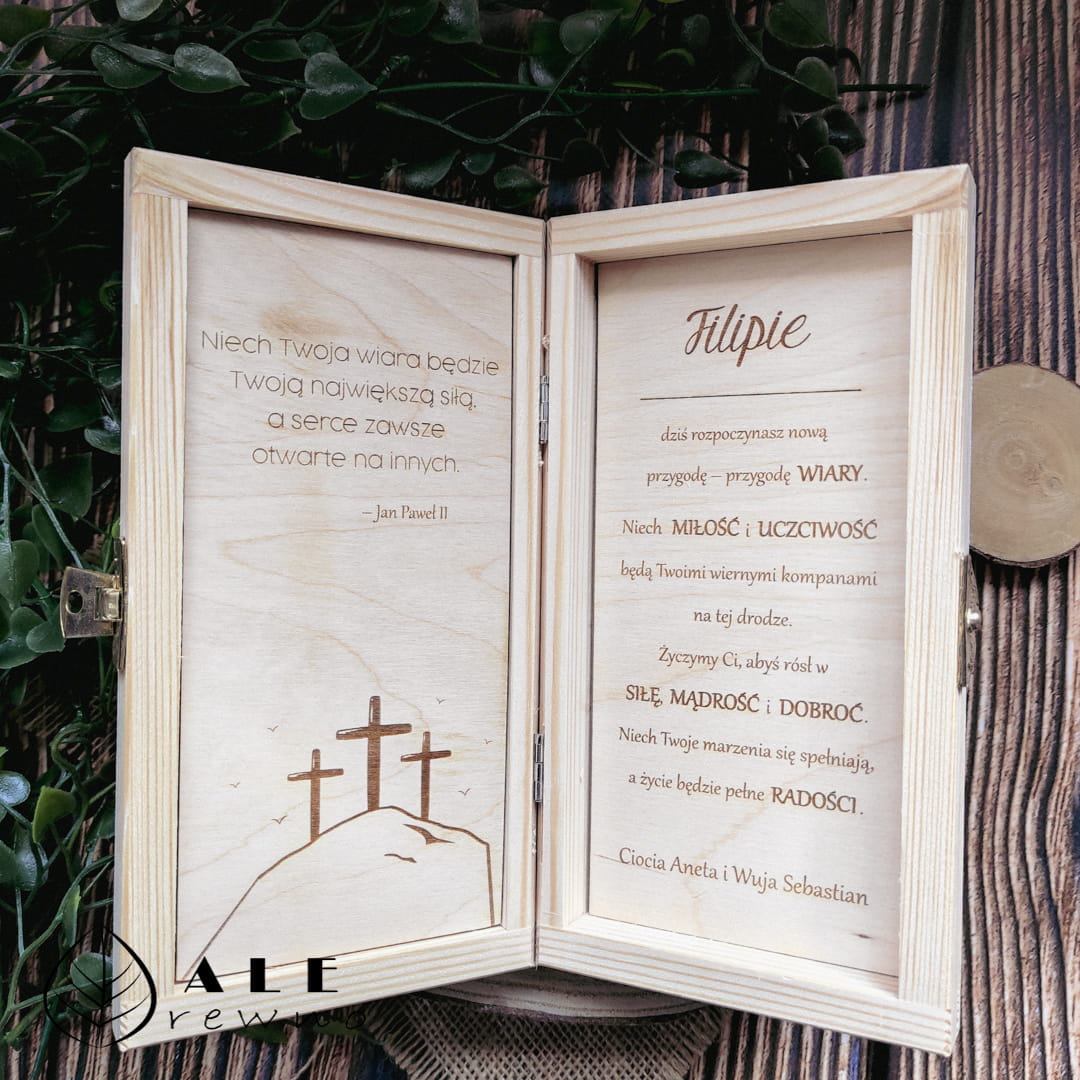 Niech Twoja wiara będzie
Twoją największą siłą,
a serce zawsze
otwarte na innych.
– Jan Paweł II
Filipie
dziś rozpoczynasz nową
przygodę – przygodę WIARY.
Niech MIŁOŚĆ i UCZCIWOŚĆ
będą Twoimi wiernymi kompanami
na tej drodze.
Życzymy Ci, abyś rósł w
SIŁĘ, MĄDROŚĆ i DOBROĆ.
Niech Twoje marzenia się spełniają,
a życie będzie pełne RADOŚCI.
Ciocia Aneta i Wuja Sebastian
ALE
rewno